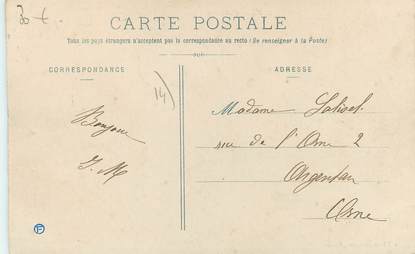 30 €
CARTE POSTALE
Tous les pays étrangers n'acceptent pas la correspondance au recto (Se renseigner à la Poste)
CORRESPONDANCE
ADRESSE
14)
Madame
Bonjour
rue de l'Orne 2
J. M
Argentan
Orne